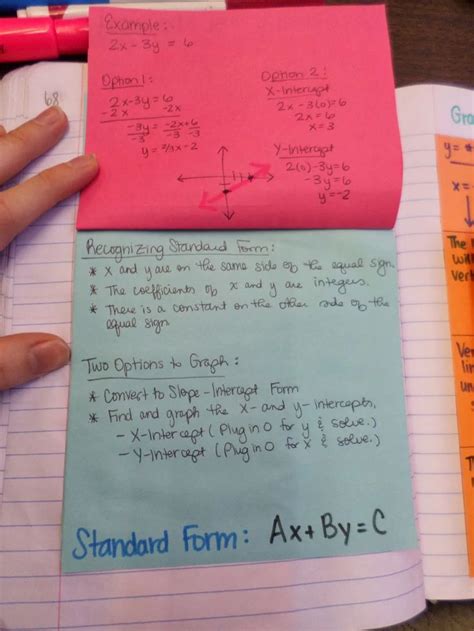 68
Example:
2x - 3y = 6
Option 1:
2x - 3y = 6
-2x -2x
-3y = -2x+6
-3 -3 -3
y = 2/3x - 2
Option 2:
X-Intercept
2x - 3(0) = 6
2x = 6
x = 3
Y-Intercept
2(0) - 3y = 6
-3y = 6
y = -2
Recognizing Standard Form:
* x and y are on the same side of the equal sign.
* The coefficients of x and y are integers.
* There is a constant on the other side of the
equal sign
Two Options to Graph:
* Convert to Slope-Intercept Form
* Find and graph the x- and y- intercepts,
- X-Intercept (Plug in 0 for y & solve.)
- Y-Intercept (Plug in 0 for x & solve.)
Standard Form: Ax + By = C
Gra
y = *
x =
The
will
vert
Ver
lin
un